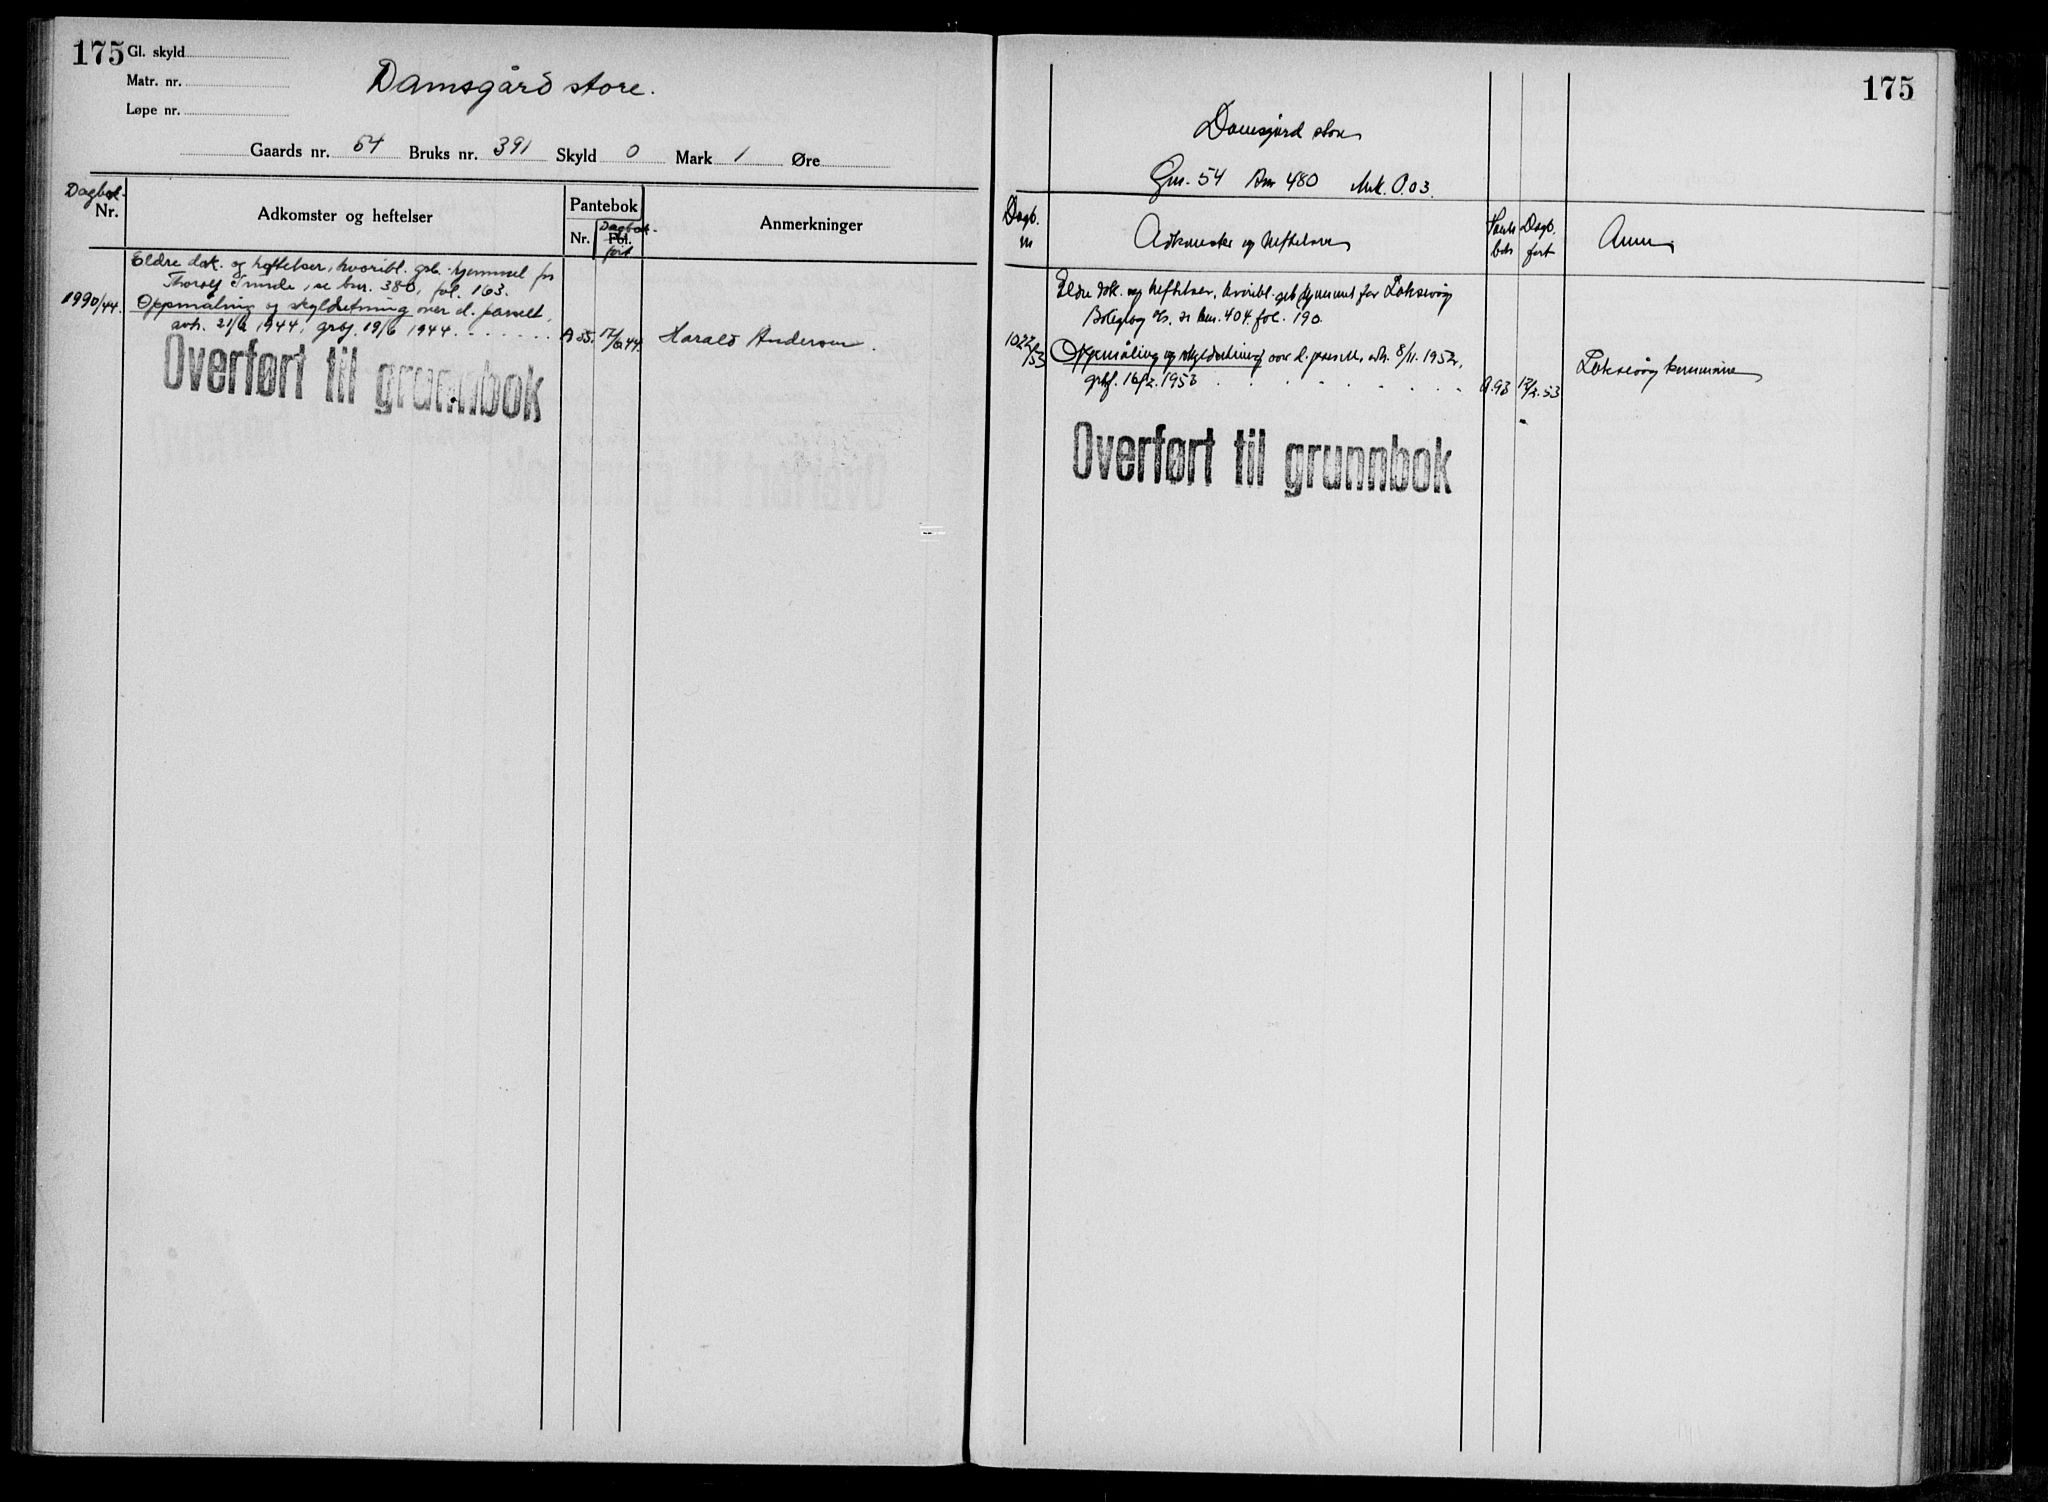 175
Gl. skyld
Matr. nr.
Løpe nr.
Damsgård store.
Gaards nr. 54 Bruks nr. 391 Skyld 0 Mark 1 Øre
Dagbok-
Nr.
Adkomster og heftelser
Pantebok
Nr.
Fol.
Dagbok-
ført
Anmerkninger
Eldre dok. og heftelser, hvoribl. grb. hjemmel for
Thorolf, se bnr. 380, fol. 163.
1990/44. Oppmåling og skyldsetning over d. parsell,
avh. 1944, grbg. 19/6 1944 A 35. 17/6 44. Harald Andersen.
Overført til grunnbok
175
Damsgård store
Gnr. 54 Bnr 480 Mrk. 0.03.
Dagb.
nr
Adkomster og heftelser
Pante
bok
Dagb.
ført
Anm.
Eldre dok. og heftelser, hvoribl. grb hjemmel for Laksevåg
Boligbyg, se bnr. 404. fol. 190.
1022/53 Oppmåling og skyldsetning over d. parsell, avh. 8/11. 1952,
grbf. 16/2. 1953 A.93 17/2.53 Laksevåg kommune
Overført til grunnbok